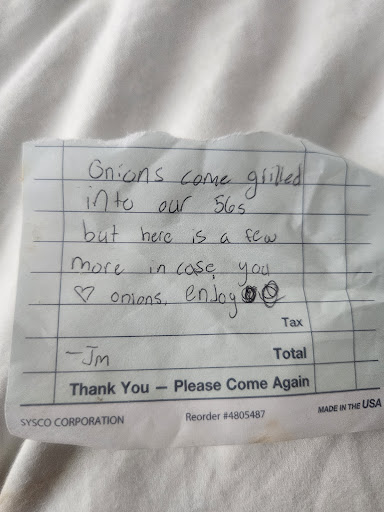 Onions come grilled
into our 56s
but here is a few
more in case you
♡ onions, enjoy
Tax
-Jm
Total
Thank You — Please Come Again
SYSCO CORPORATION
Reorder #4805487
MADE IN THE USA